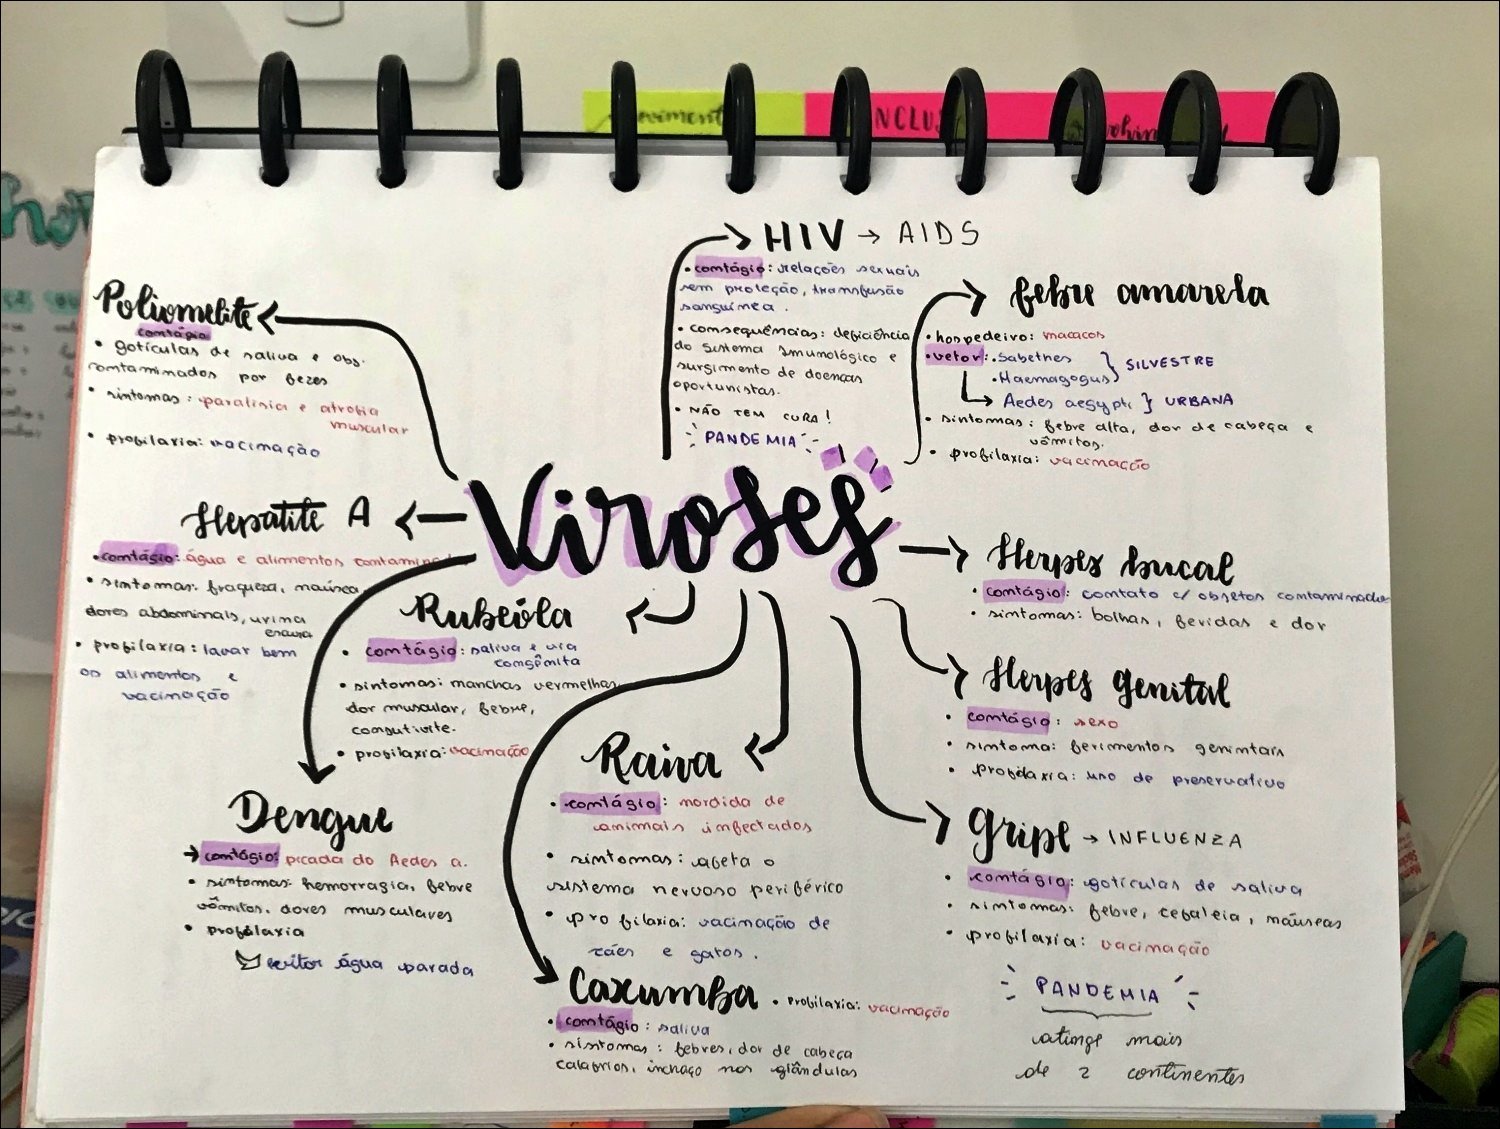 NCLUS
HIV → AIDS
• contágio: relações sexuais
sem proteção, transfusão
sanguínea.
• consequências: deficiência
do sistema imunológico e
surgimento de doenças
oportunistas.
• NÃO TEM CURA!
PANDEMIA
febre amarela
• hospedeiro: macacos
• vetor: • Sabethes
• Haemagogus } SILVESTRE
→ Aedes aegypti } URBANA
• sintomas: febre alta, dor de cabeça e
vômitos.
• profilaxia: vacinação
Poliomelite
contágio
• gotículas de saliva e obs.
contaminados por fezes
• sintomas: paralisia e atrofia
muscular
• profilaxia: vacinação
Viroses
Hepatite A
• contágio: água e alimentos contaminad
• sintomas: fraqueza, náusea
dores abdominais, urina
escura
• profilaxia: lavar bem
os alimentos e
vacinação
Rubéola
• contágio: saliva e via
congênita
• sintomas: manchas vermelhas,
dor muscular, febre,
conjutivite.
• profilaxia: vacinação
Herpes bucal
• contágio: contato c/ objetos contaminados
• sintomas: bolhas, feridas e dor
Herpes genital
• contágio: sexo
• sintoma: ferimentos genintais
• profilaxia: uso de preservativo
Dengue
→ contágio: picada do Aedes a.
• sintomas: hemorragia, febre
vômitos, dores musculares
• profilaxia
evitar água parada
Raiva
• contágio: mordida de
animais infectados
• sintomas: afeta o
sistema nervoso periférico
• profilaxia: vacinação de
cães e gatos.
Gripe → INFLUENZA
• contágio: gotículas de saliva
• sintomas: febre, cefaleia, náuseas
• profilaxia: vacinação
PANDEMIA
atinge mais
de 2 continentes
Caxumba • profilaxia: vacinação
• contágio: saliva
• sintomas: febres, dor de cabeça
calafrios, inchaço nas glândulas